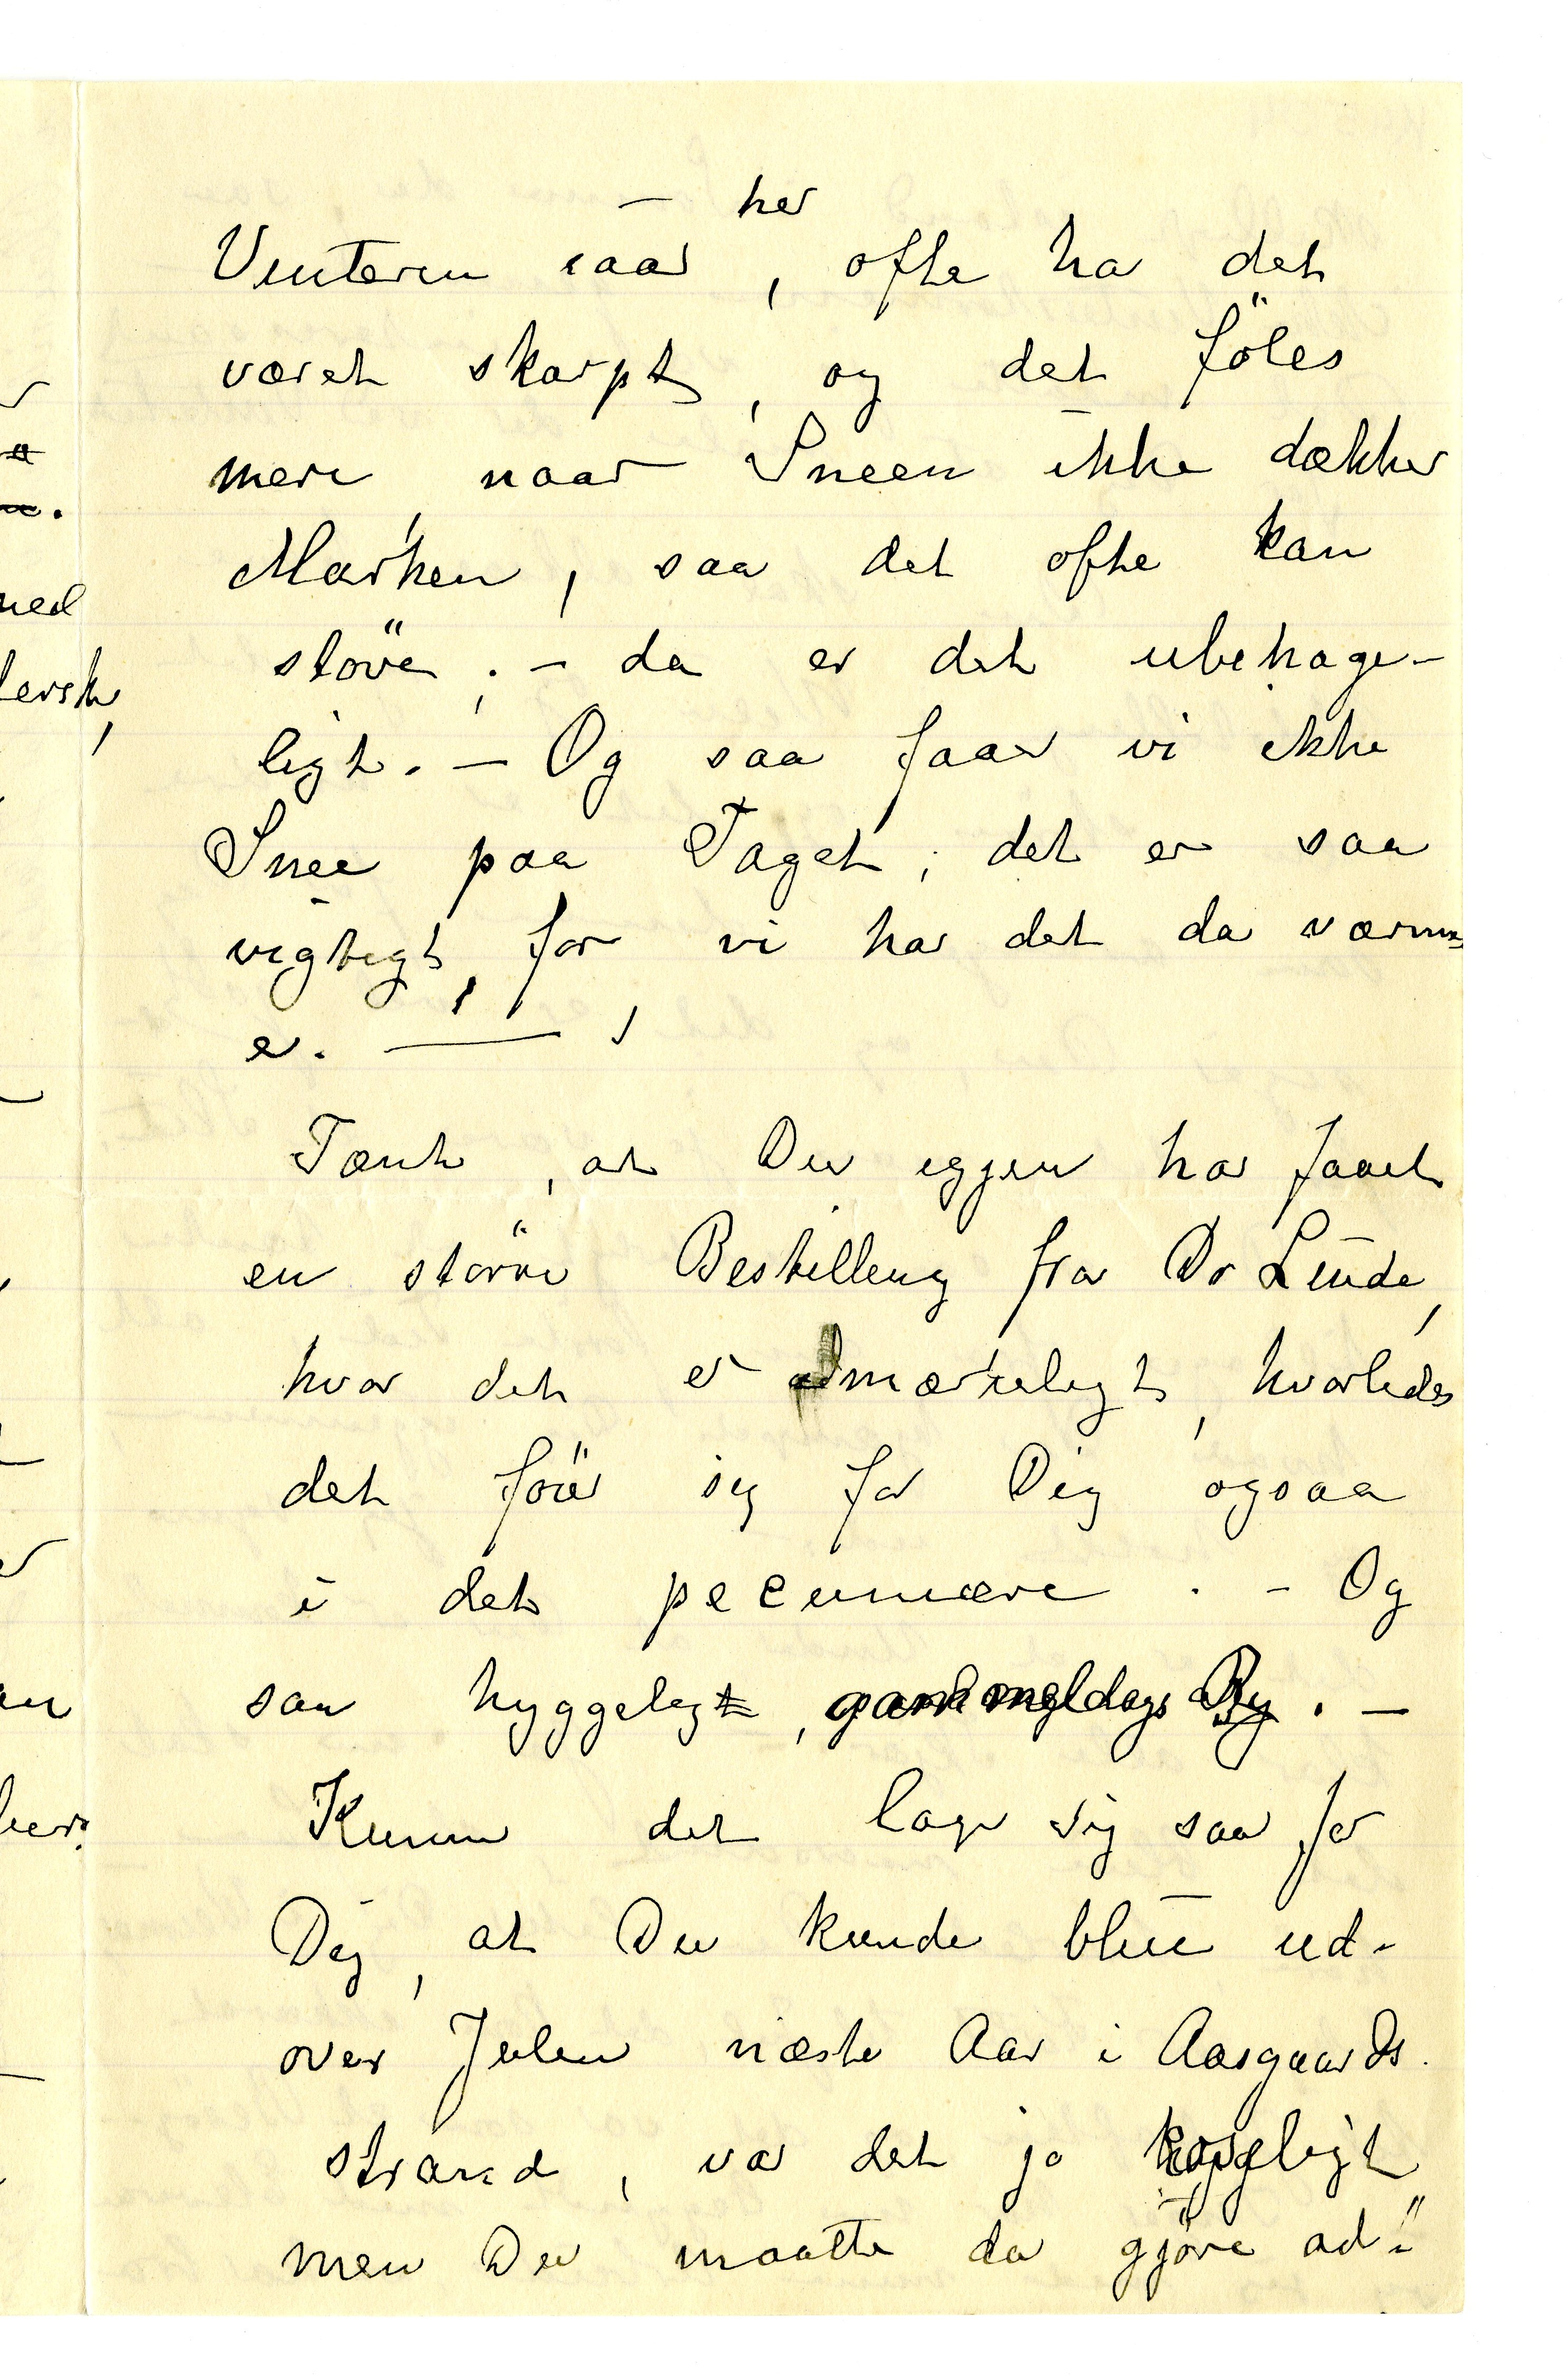 her
Vinteren iaar, ofte ha det
været skarpt, og det föles
mere naar Sneen ikke dækker
Marken, saa det ofte kan
støve; – da er det ubehage-
ligt. – Og saa faar vi ikke
Snee paa Taget; det er saa
vigtigt, for vi har det da varm
er. —
Tænk, at Du igjen har faaet
en større Bestilling fra Dr Linde,
hvor det er mærkeligt, hvorledes
det föier sig for Dig ogsaa
i det pecuniære. – Og
saa hyggeligt, gammeldags By. –
Kunne det lage sig saa for
Dig, at Du kunde blive ud-
over Julen næste Aar i Aasgaards
strand, var det jo koseligt
men Du maatte da gjöre ad-
ned
lersk,